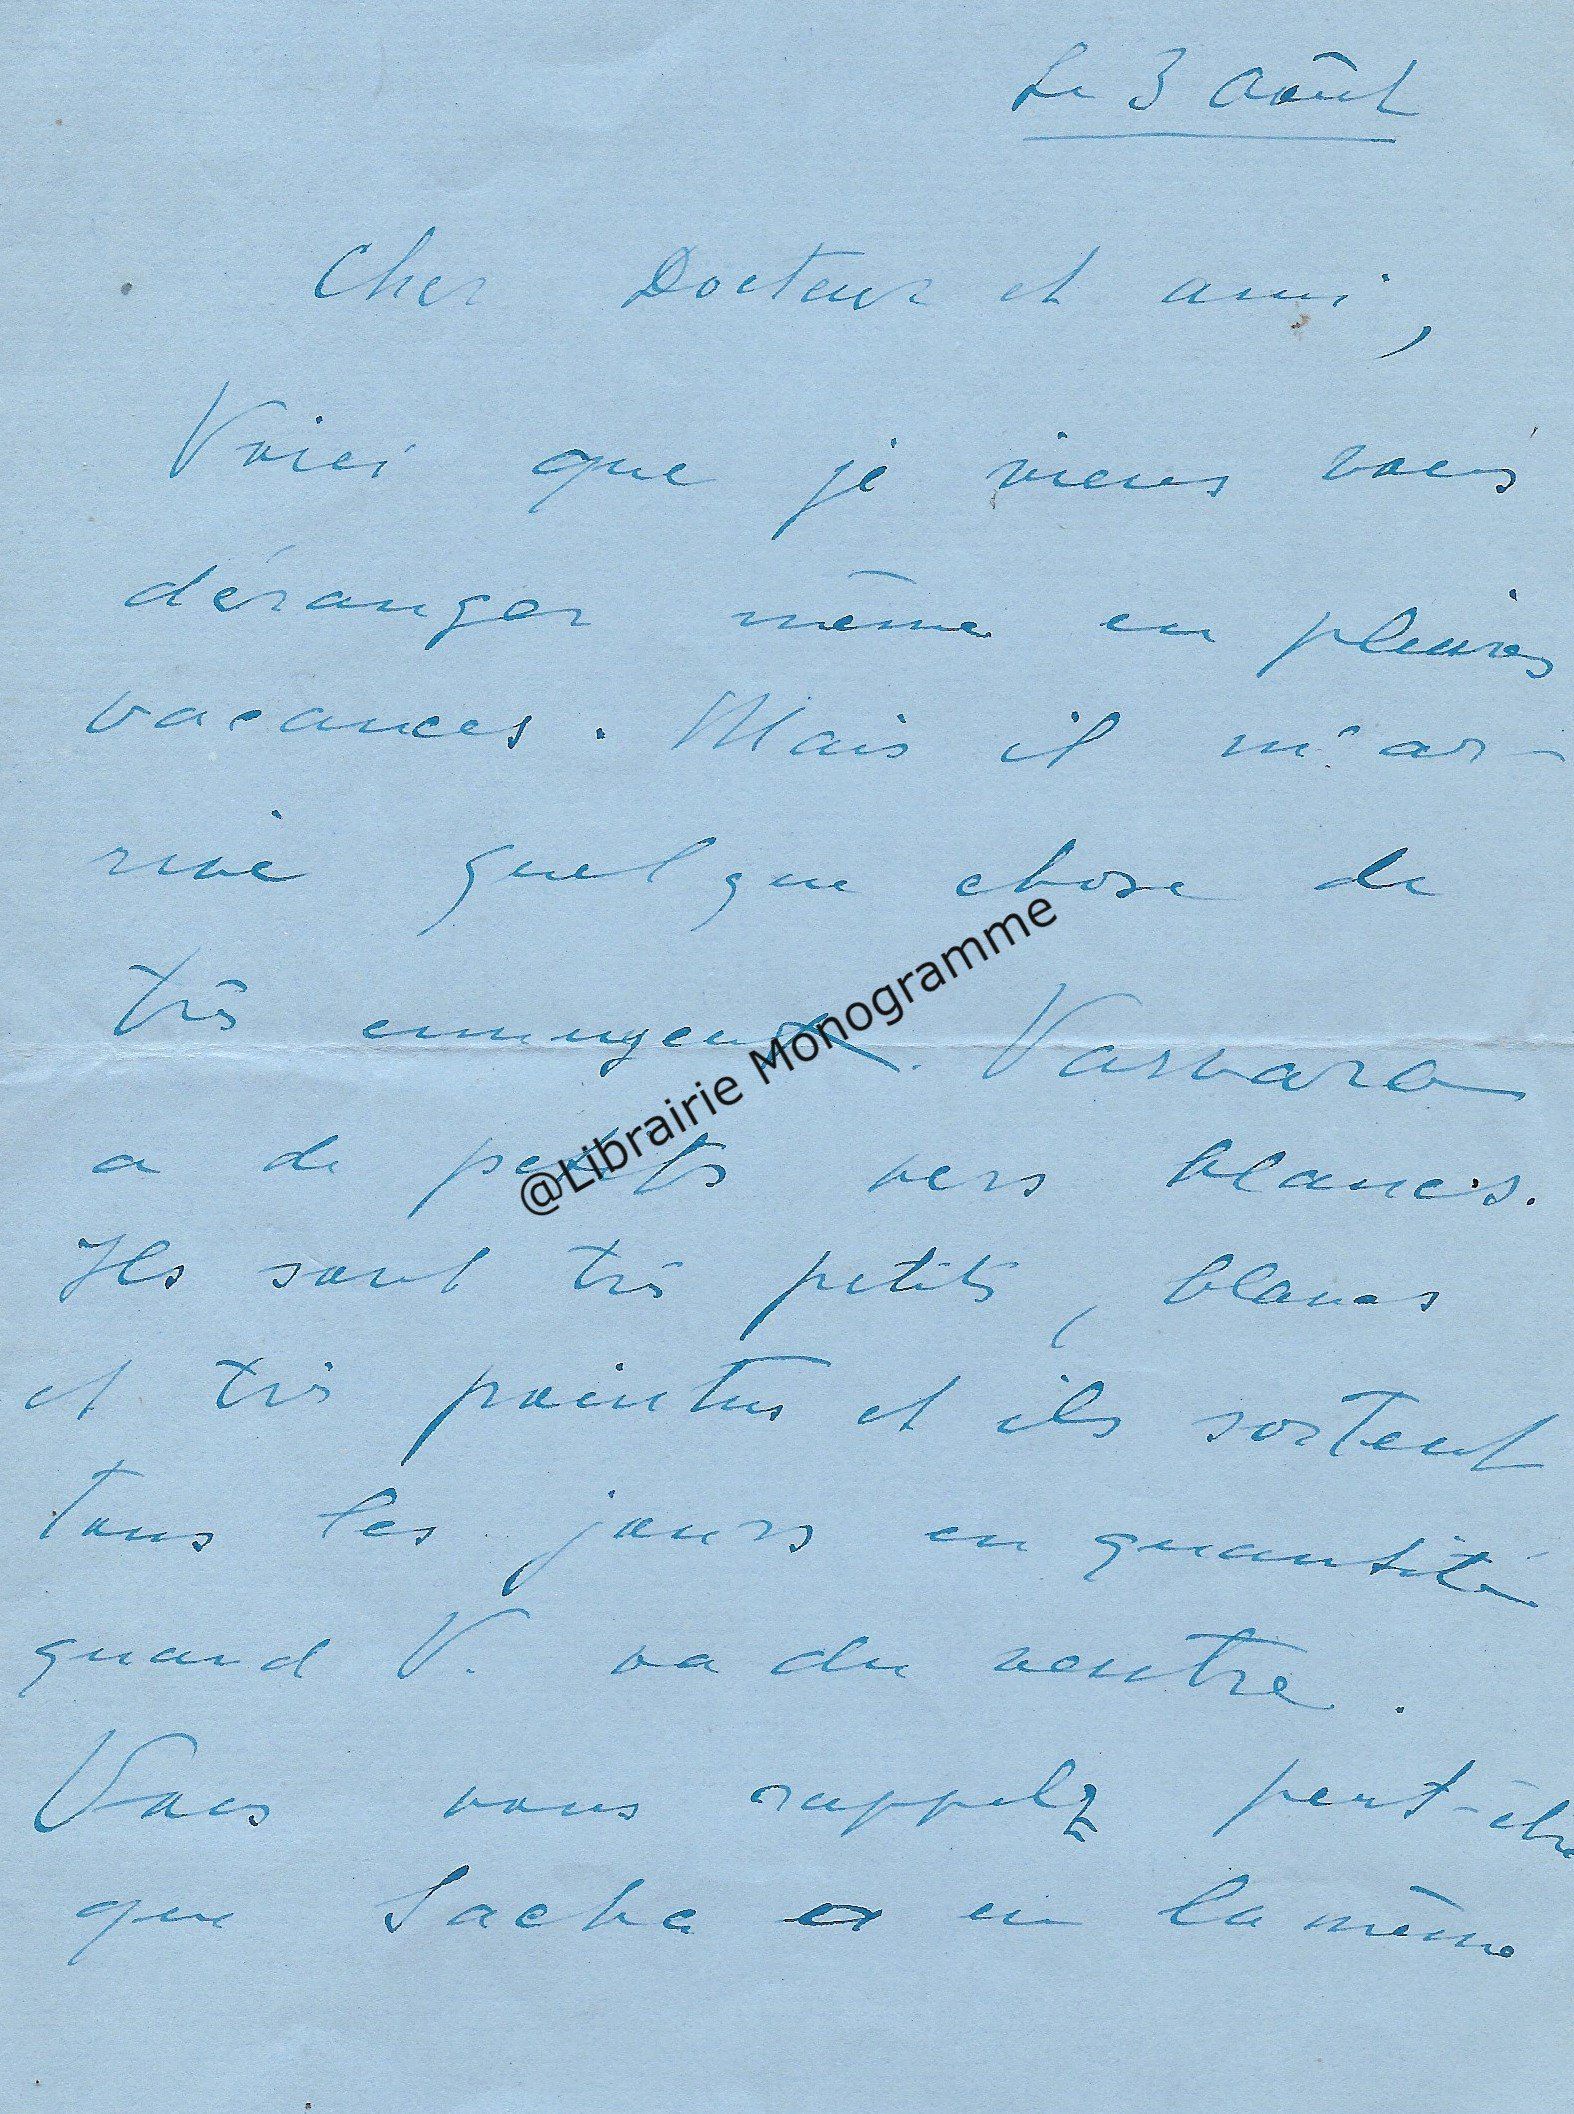 Le 3 Août
Cher Docteur et ami,
Voici que je viens vous
déranger même en pleines
vacances. Mais il m'ar-
rive quelque chose de
très ennuyeux. Varvara
a de petits vers blancs.
Ils sont très petits, blancs
et très pointus et ils sortent
tous les jours en quantité
quand V. va du ventre.
Vous vous rappelez peut-être
que Sacha a eu la même
@Librairie Monogramme